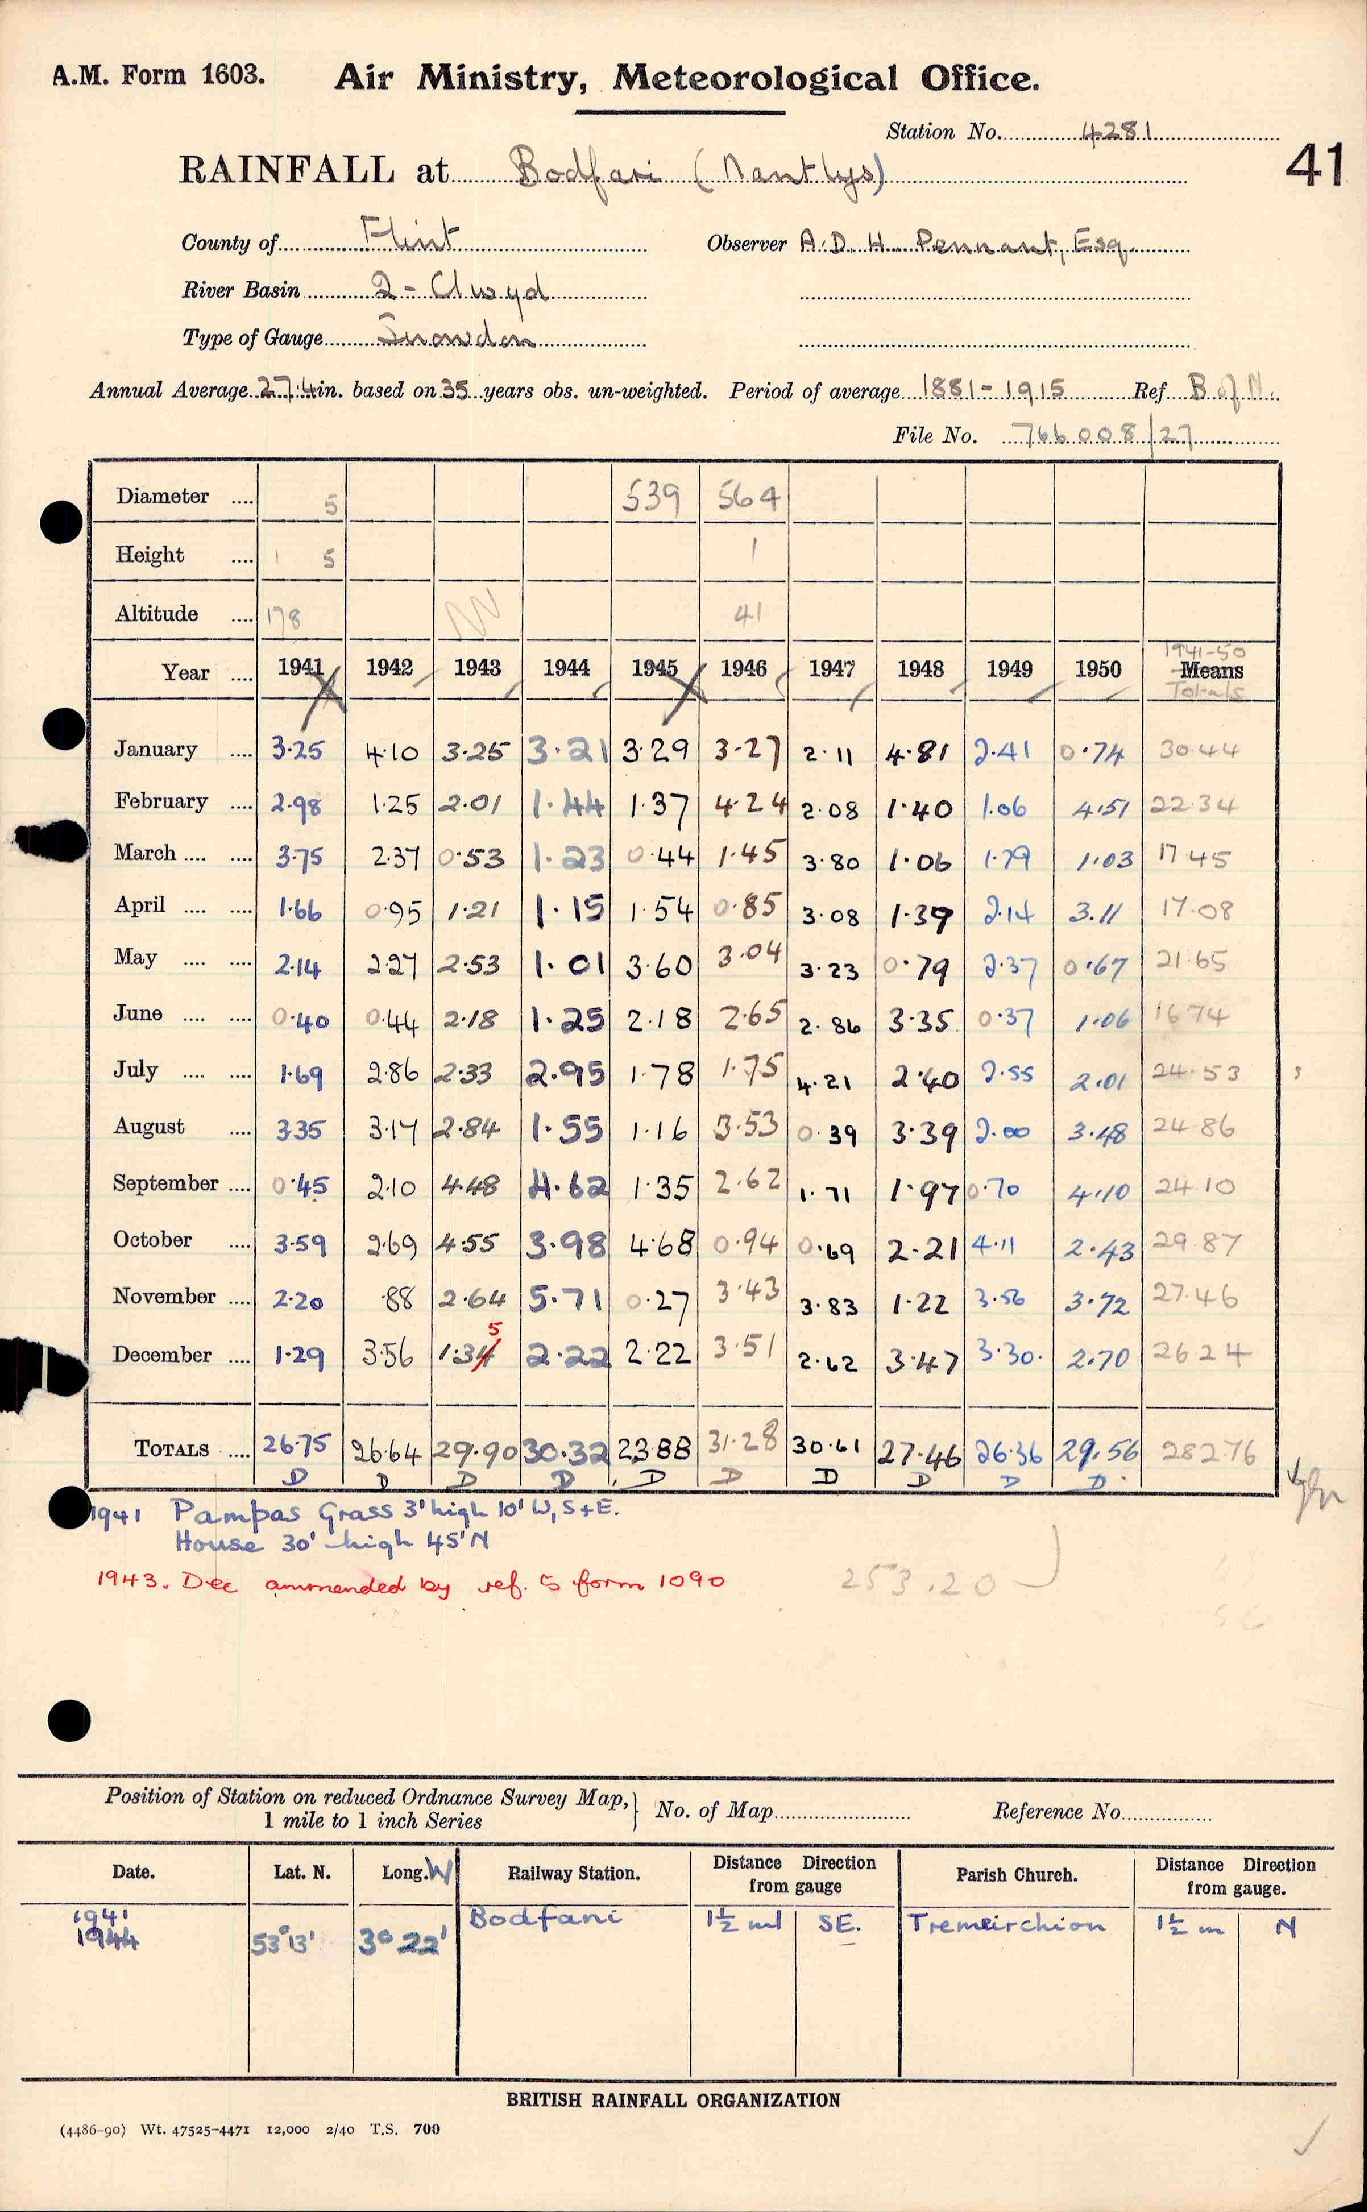 A.M. Form 1603. Air Ministry, Meteorological Office.
Station No. 4281
41
RAINFALL at Bodfari (Nantlys)
County of Flint Observer A. D. H. Pennant, Esq.
River Basin 2 - Clwyd
Type of Gauge Snowdon
Annual Average 27.4 in. based on 35 years obs. un-weighted. Period of average 1881-1915 Ref B of N.
File No. 766008/27
Diameter .... 5 539 564
Height .... 1 5 1
Altitude .... 178 41
1941-50
Year .... 1941 1942 1943 1944 1945 1946 1947 1948 1949 1950 Means
Totals
January .... 3.25 4.10 3.25 3.21 3.29 3.27 2.11 4.81 2.41 0.74 30.44
February .... 2.98 1.25 2.01 1.44 1.37 4.24 2.08 1.40 1.06 4.51 22.34
March .... .... 3.75 2.37 0.53 1.23 0.44 1.45 3.80 1.06 1.79 1.03 17.45
April .... .... 1.66 0.95 1.21 1.15 1.54 0.85 3.08 1.39 2.14 3.11 17.08
May .... .... 2.14 2.27 2.53 1.01 3.60 3.04 3.23 0.79 2.37 0.67 21.65
June .... .... 0.40 0.44 2.18 1.25 2.18 2.65 2.86 3.35 0.37 1.06 16.74
July .... .... 1.69 2.86 2.33 2.95 1.78 1.75 4.21 2.40 2.55 2.01 24.53
August .... 3.35 3.17 2.84 1.55 1.16 3.53 0.39 3.39 2.00 3.48 24.86
September .... 0.45 2.10 4.48 4.62 1.35 2.62 1.71 1.97 0.70 4.10 24.10
October .... 3.59 2.69 4.55 3.98 4.68 0.94 0.69 2.21 4.11 2.43 29.87
November .... 2.20 .88 2.64 5.71 0.27 3.43 3.83 1.22 3.56 3.72 27.46
5
December .... 1.29 3.56 1.34 2.22 2.22 3.51 2.62 3.47 3.30. 2.70 26.24
TOTALS .... 26.75 26.64 29.90 30.32 23.88 31.28 30.61 27.46 26.36 29.56 282.76
D D D D D D D D D D
1941 Pampas Grass 3' high 10' W, S + E.
House 30' high 45' N
1943. Dec ammended by ref. 5 form 1090
253.20
Position of Station on reduced Ordnance Survey Map, 1 mile to 1 inch Series } No. of Map Reference No.
Date. Lat. N. Long. W Railway Station. Distance Direction from gauge Parish Church. Distance Direction from gauge.
1941 Bodfari 1½ ml SE. Tremeirchion 1½ m N
1944 53° 13' 3° 22'
BRITISH RAINFALL ORGANIZATION
(4486-90) Wt. 47525-4471 12,000 2/40 T.S. 700